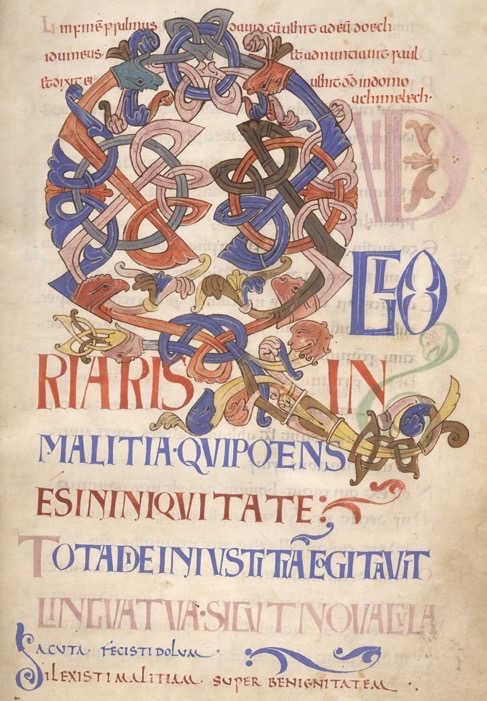 In finē psalmus david cū uenit ad eū doech
idumeus et adnunciauit saul
et dixit ei uenit dd in domo
achimelech·
QVID
GLO
RIARIS IN
MALITIA·QVIPOTENS
ESININIQVITATE:
TOTADIEINIVSTITIĀCOGITAVIT
LINGVATVA·SICVTNOVACVLA
SACVTA· FECISTI DOLVM·
DILEXISTI MALITIAM· SUPER BENIGNITATEM·